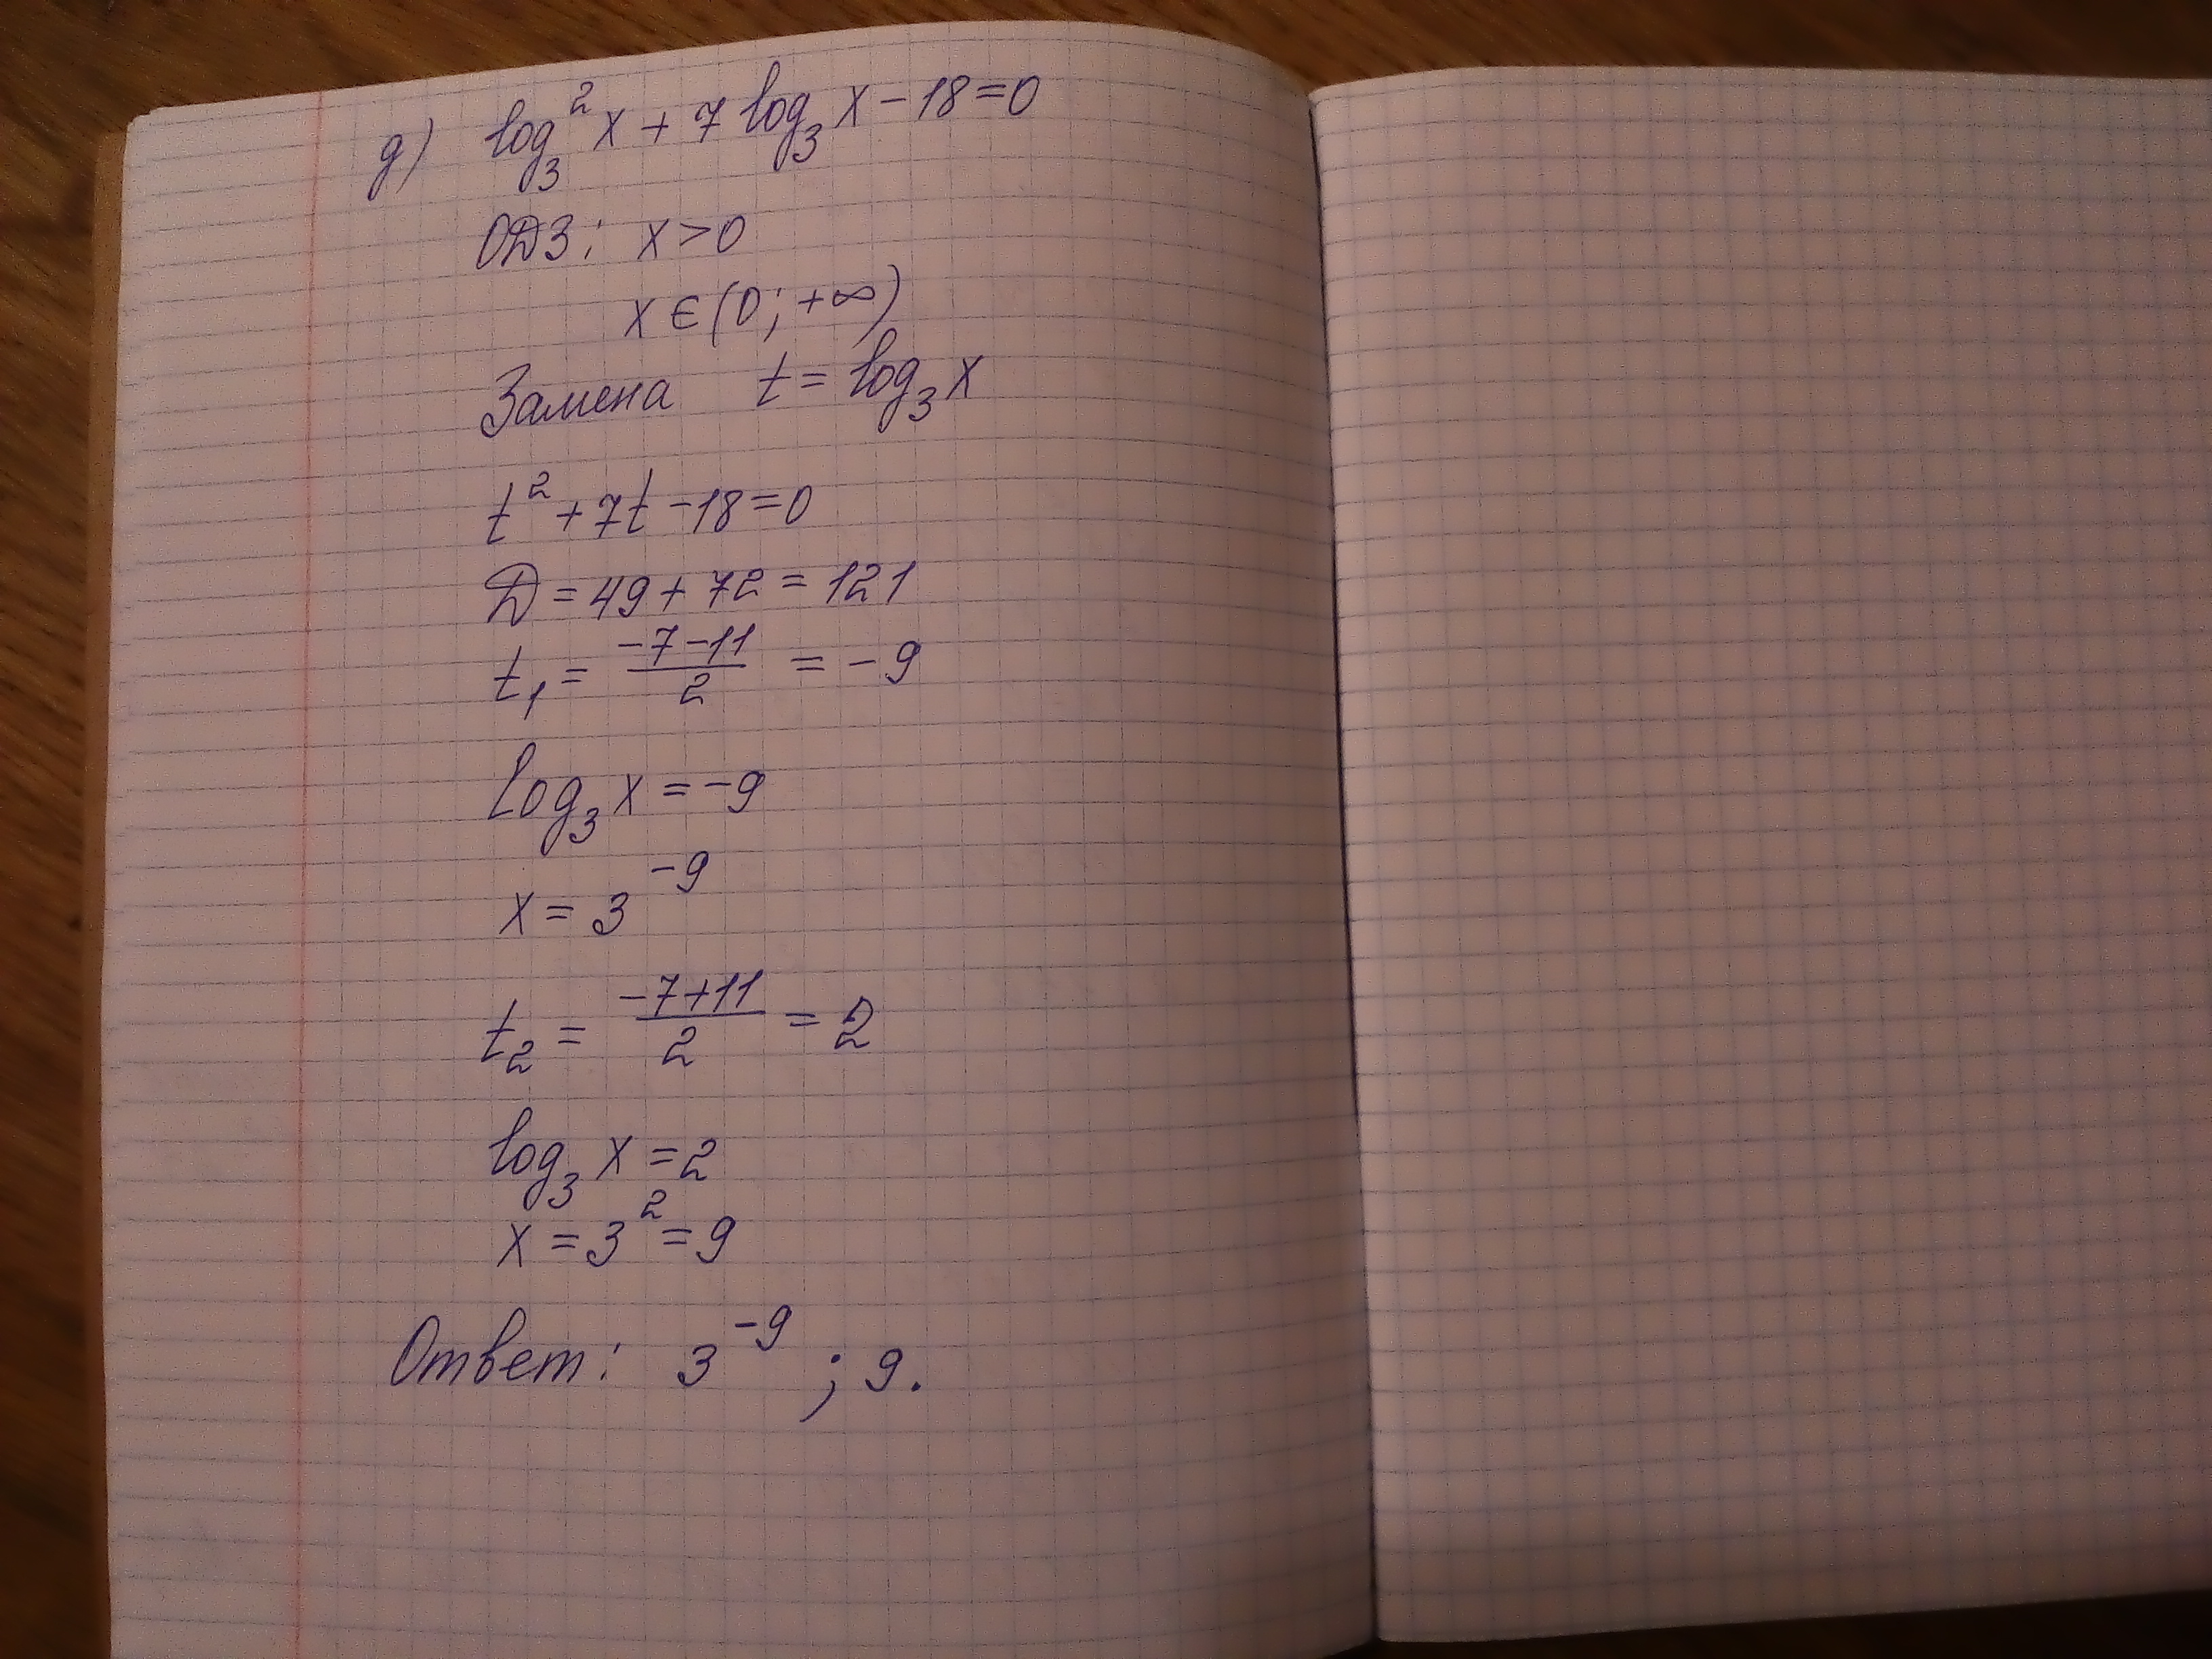 д) log₃²x + 7 log₃x − 18 = 0
ОДЗ: x > 0
x ∈ (0; +∞)
Замена t = log₃x
t² + 7t − 18 = 0
D = 49 + 72 = 121
t₁ = (−7−11)/2 = −9
log₃x = −9
x = 3⁻⁹
t₂ = (−7+11)/2 = 2
log₃x = 2
x = 3² = 9
Ответ: 3⁻⁹; 9.